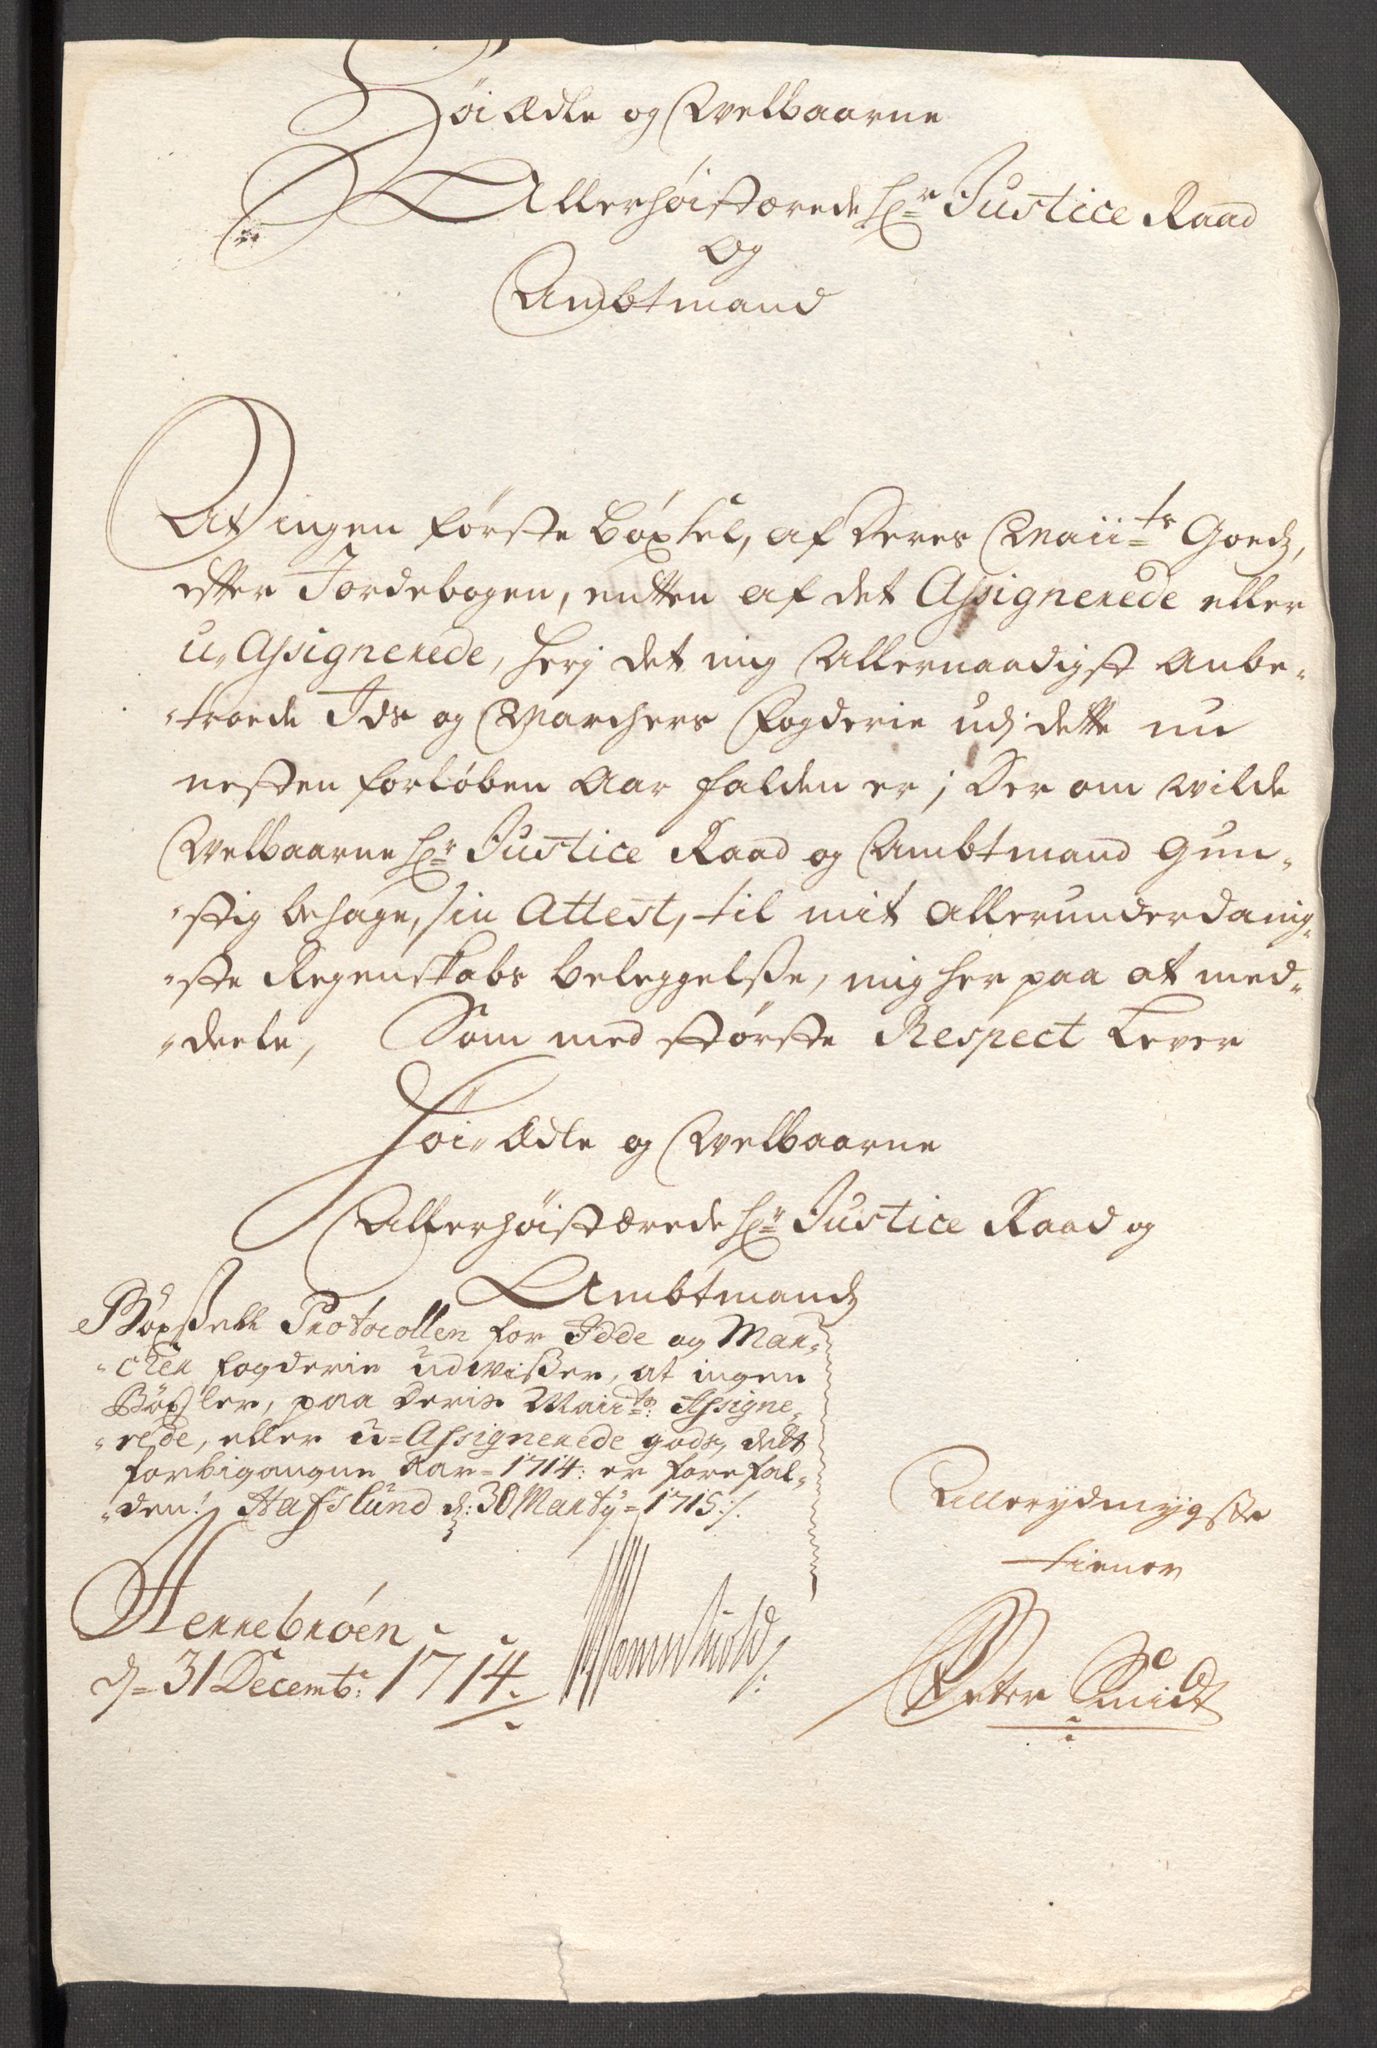 Höi Ædle og Welbaarne
Allerhöistærede Hr Justice Raad
Og
Ambtmand
At ingen förste böxsel, af Deres Maiits Goedz,
efter Jordebogen, enten af det Assignerede eller
u-Assignerede, her j det mig Allernaadigst Anbe-
-troede Ids og Marchers Fogderie udj dette nu
nesten forlöben Aar falden er; Der om wilde
Welbaarne Hr Justice Raad og Ambtmand Gun-
-stig behage, sin Attest, til mit allerunderdanig-
-ste Regenskabs beleggelsse, mig her paa at med-
-deele, Som med störste Respect Lever
Höi-Ædle og Welbaarne
Allerhöistærede Hr Justice Raad og
Ambtmandz
Böxssell Protocollen for Idde og Mar-
-cken fogderie udwisser, at ingen
Böxsler, paa Deris Maiits Assigne-
-rede, eller u-Assignerede gods, dett
forbigangne Aar 1714: er forefal-
-den: Hafslund d: 30 Marty 1715:/.
Allerydmygste
tiener
Herrebröen
d 31 Decembr: 1714.
Peter Smidt